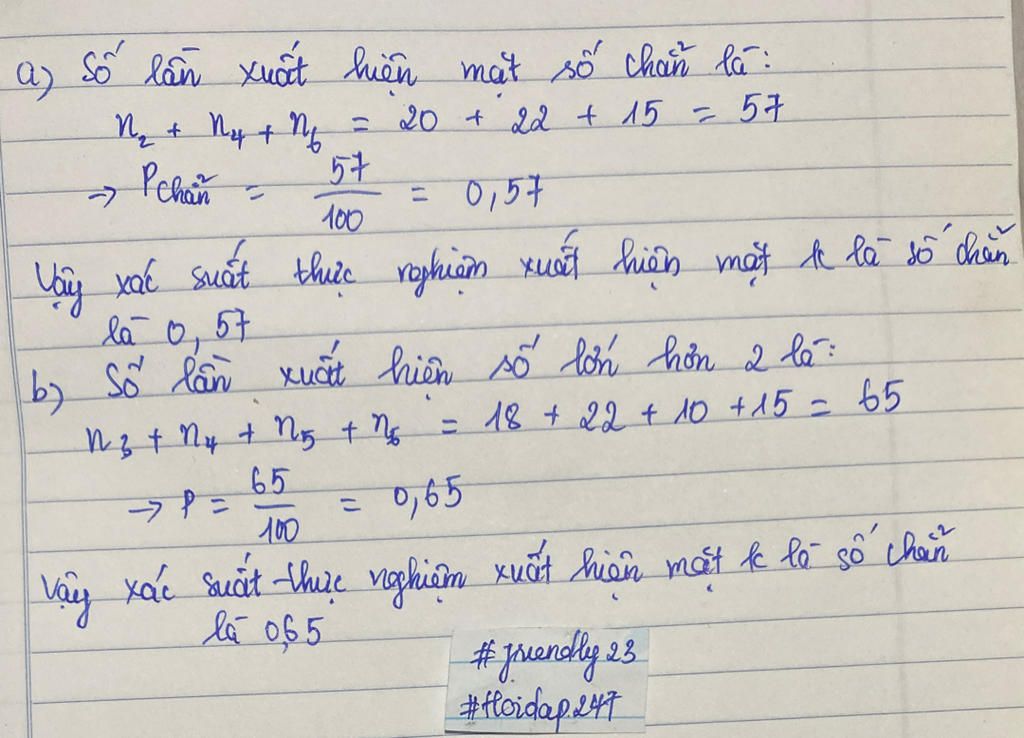 a) Số lần xuất hiện mặt số chẵn là:
n₂ + n₄ + n₆ = 20 + 22 + 15 = 57
→ Pchẵn = 57/100 = 0,57
Vậy xác suất thực nghiệm xuất hiện mặt k là số chẵn
là 0,57
b) Số lần xuất hiện số lớn hơn 2 là:
n₃ + n₄ + n₅ + n₆ = 18 + 22 + 10 + 15 = 65
→ P = 65/100 = 0,65
Vậy xác suất thực nghiệm xuất hiện mặt k là số chẵn
là 0,65
#friendly23
#Hoidap247